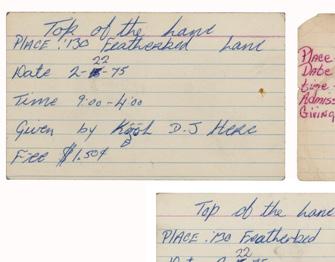 Top of the Lane
PLACE: 130 Featherbed Lane
22
Date 2-15-75
Time 9:00-4:00
Given by Kool D.J Herc
Fee $1.50¢
Place
Date
time
Admiss
Giving
Top of the Lane
PLACE: 130 Featherbed
22